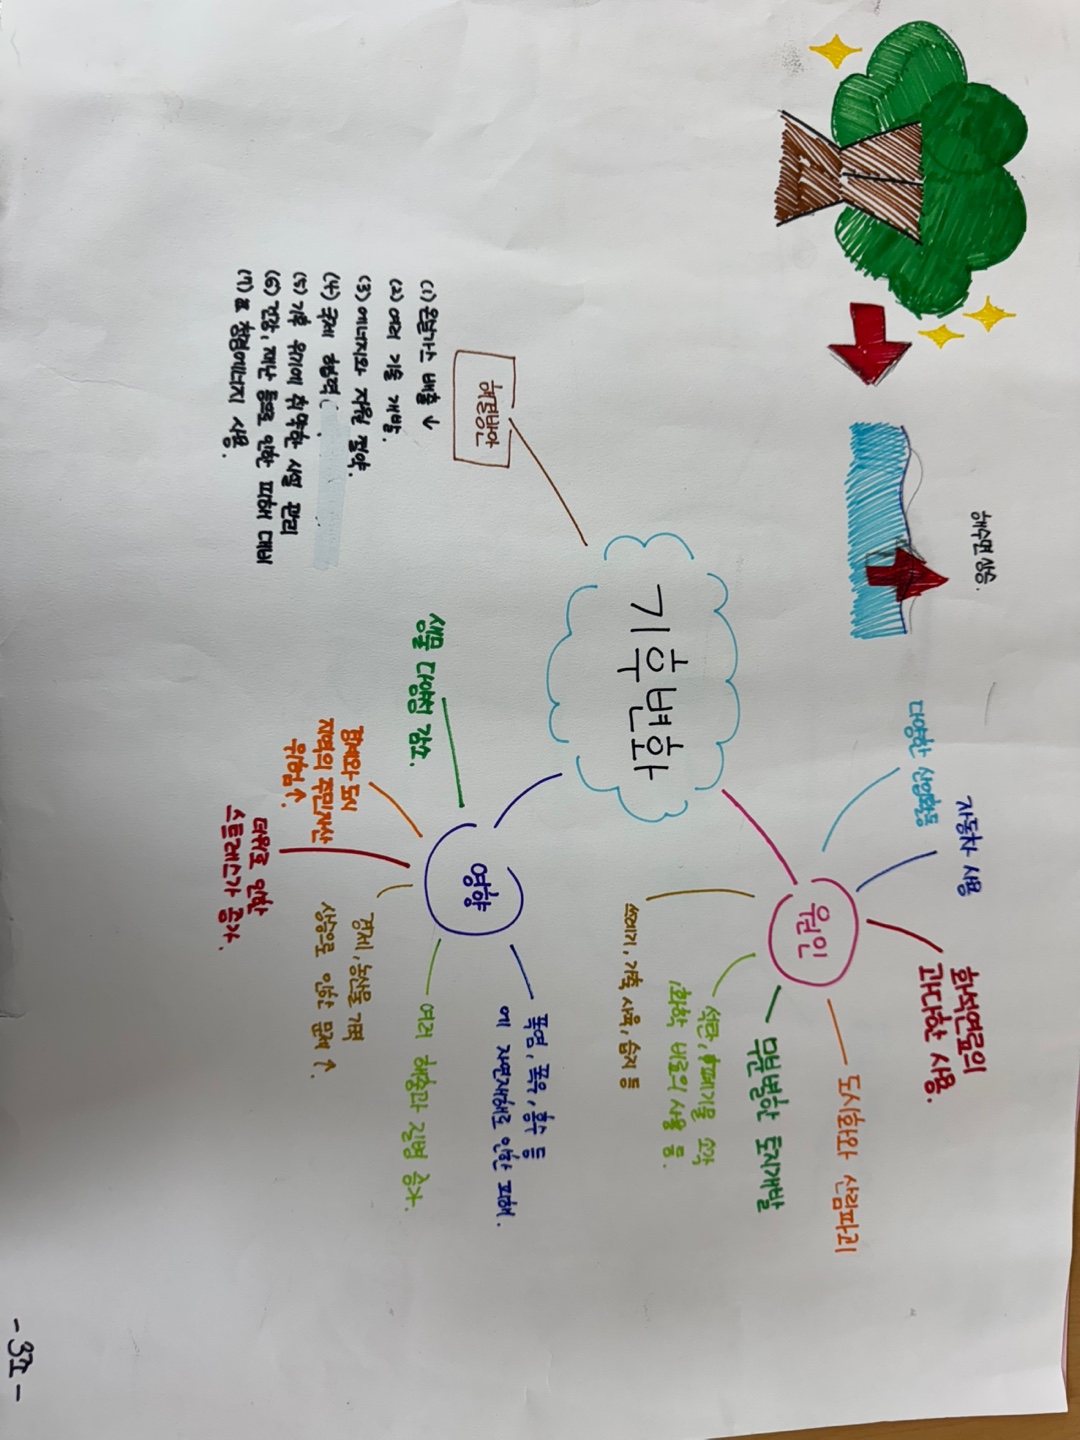 해수면 상승.
기후변화
원인
다양한 산업활동
자동차 사용
화석연료의
과다한 사용.
도시화와 산림파괴
무분별한 토지개발
석탄, 폐기물 소각,
화학 비료의 사용 등.
쓰레기, 가축 사육, 습지 등
영향
생물 다양성 감소.
경제와 도시
지역의 주민자산
위험 ↑.
더위로 인한
스트레스가 증가.
경제, 농산물 가격
상승으로 인한 문제 ↑.
여러 해충과 질병 증가.
폭염, 폭우, 홍수 등
에 자연재해로 인한 피해.
해결방안
(1) 온실가스 배출 ↓
(2) 여러 기술 개발.
(3) 에너지와 자원 절약.
(4) 국제 협력
(5) 기후 위기에 취약한 시설 관리
(6) 건강, 재난 등으로 인한 피해 대비
(7) 친환경에너지 사용.